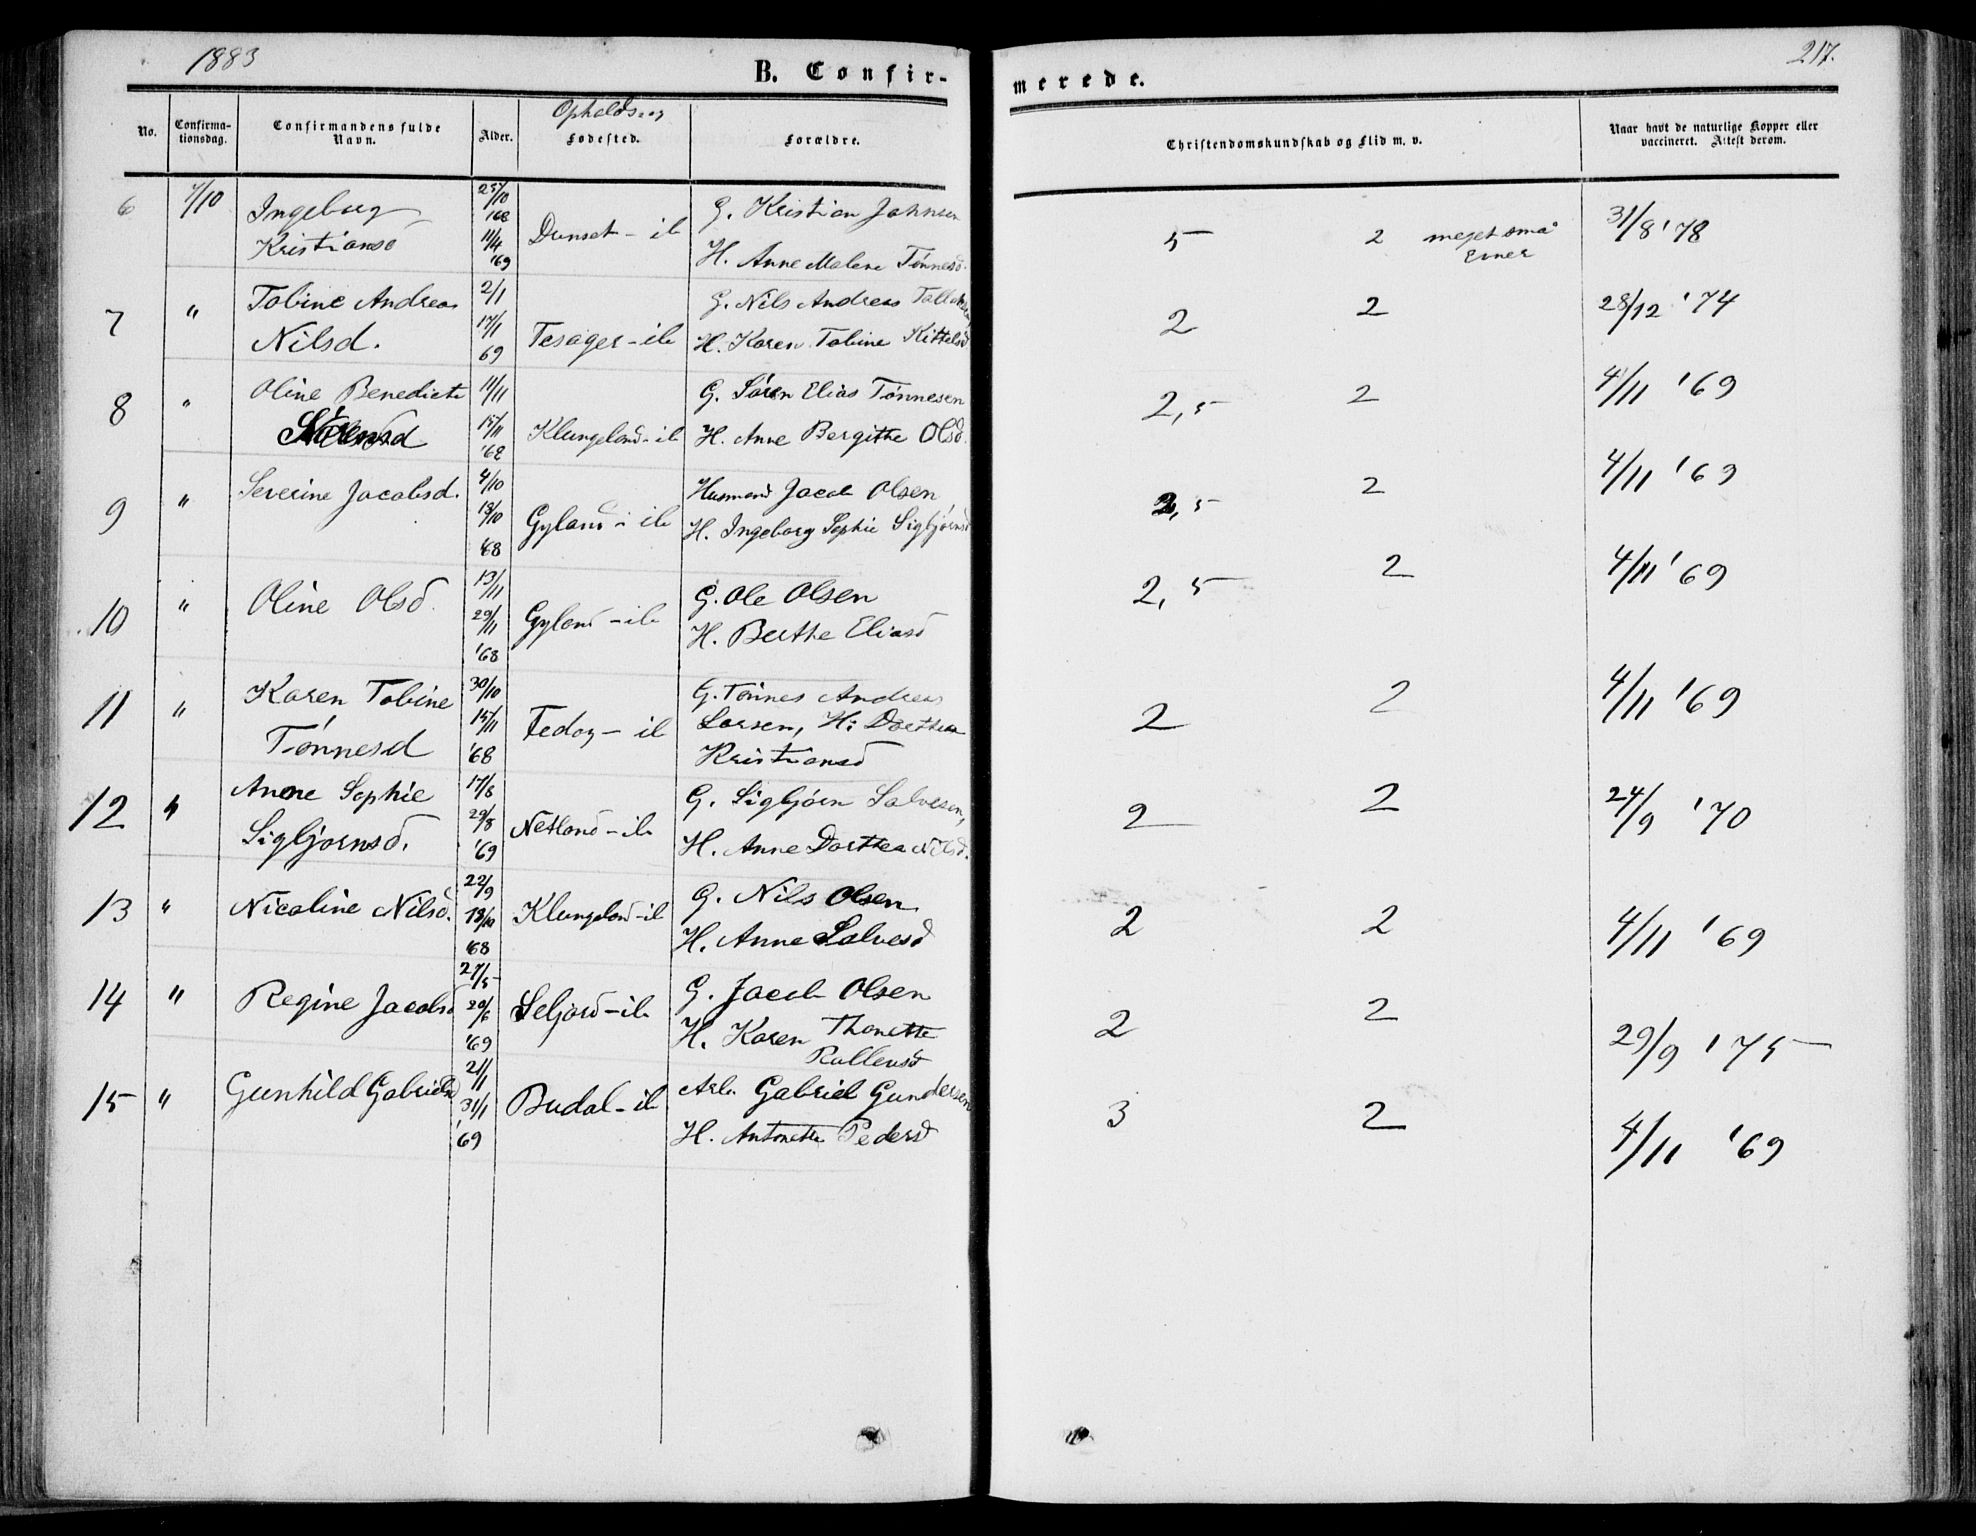 1883
217.
B. Confir-
merede.
No.
Confirma-
tionsdag.
Confirmandens fulde
Navn.
Alder.
Opholds og
Fødested.
Forældre.
Christendomskundskab og Flid m. v.
Naar havt de naturlige Kopper eller
vaccineret. Attest derom.
6 7/10 Ingeborg
Kristiansd
25/10
'68
11/4
'69
Dunset - ib
G. Kristian Johnsen
H. Anne Malene Tønnesd.
5 2 meget små
Evner
31/8 '78
7 " Tobine Andrea
Nilsd.
2/1
17/1
69
Tesager - ib
G. Nils Andreas
H. Karen Tobine Kittelsd
2 2 28/12 '74
8 " Oline Benedicte
Sørensd
11/11
15/11
'68
Klungeland - ib
G. Søren Elias Tønnesen
H. Anne Bergithe Olsd.
2,5 2 4/11 '69
9 " Severine Jacobsd.
4/10
18/10
'68
Gyland - ib
Husmand Jacob Olsen
H. Ingeborg Sophie Sigbjørnsd
2,5 2 4/11 '69
10 " Oline Olsd.
13/11
29/11
'68
Gyland - ib
G. Ole Olsen
H. Berthe Eliasd
2,5 2 4/11 '69
11 " Karen Tobine
Tønnesd
30/10
15/11
'68
Fedog - ib
G. Tønnes Andreas
Larsen, H: Dorthea
Kristiansd
2 2 4/11 '69
12 " Anne Sophie
Sigbjørnsd.
17/8
29/8
'69
Netland - ib
G. Sigbjørn Salvesen,
H. Anne Dorthea Nilsd.
2 2 24/9 '70
13 " Nicoline Nilsd.
22/9
18/10
'68
Klungeland - ib
G. Nils Olsen
H. Anne Salvesd
2 2 4/11 '69
14 " Regine Jacobsd
27/5
20/6
'69
Seljord - ib
G. Jacob Olsen
H. Karen Thonette
Rullensd
2 2 29/9 '75
15 " Gunhild Gabrielsd
21/1
31/1
'69
Budal - ib
Arb. Gabriel Gundersen
H. Antonette Pedersd
3 2 4/11 '69